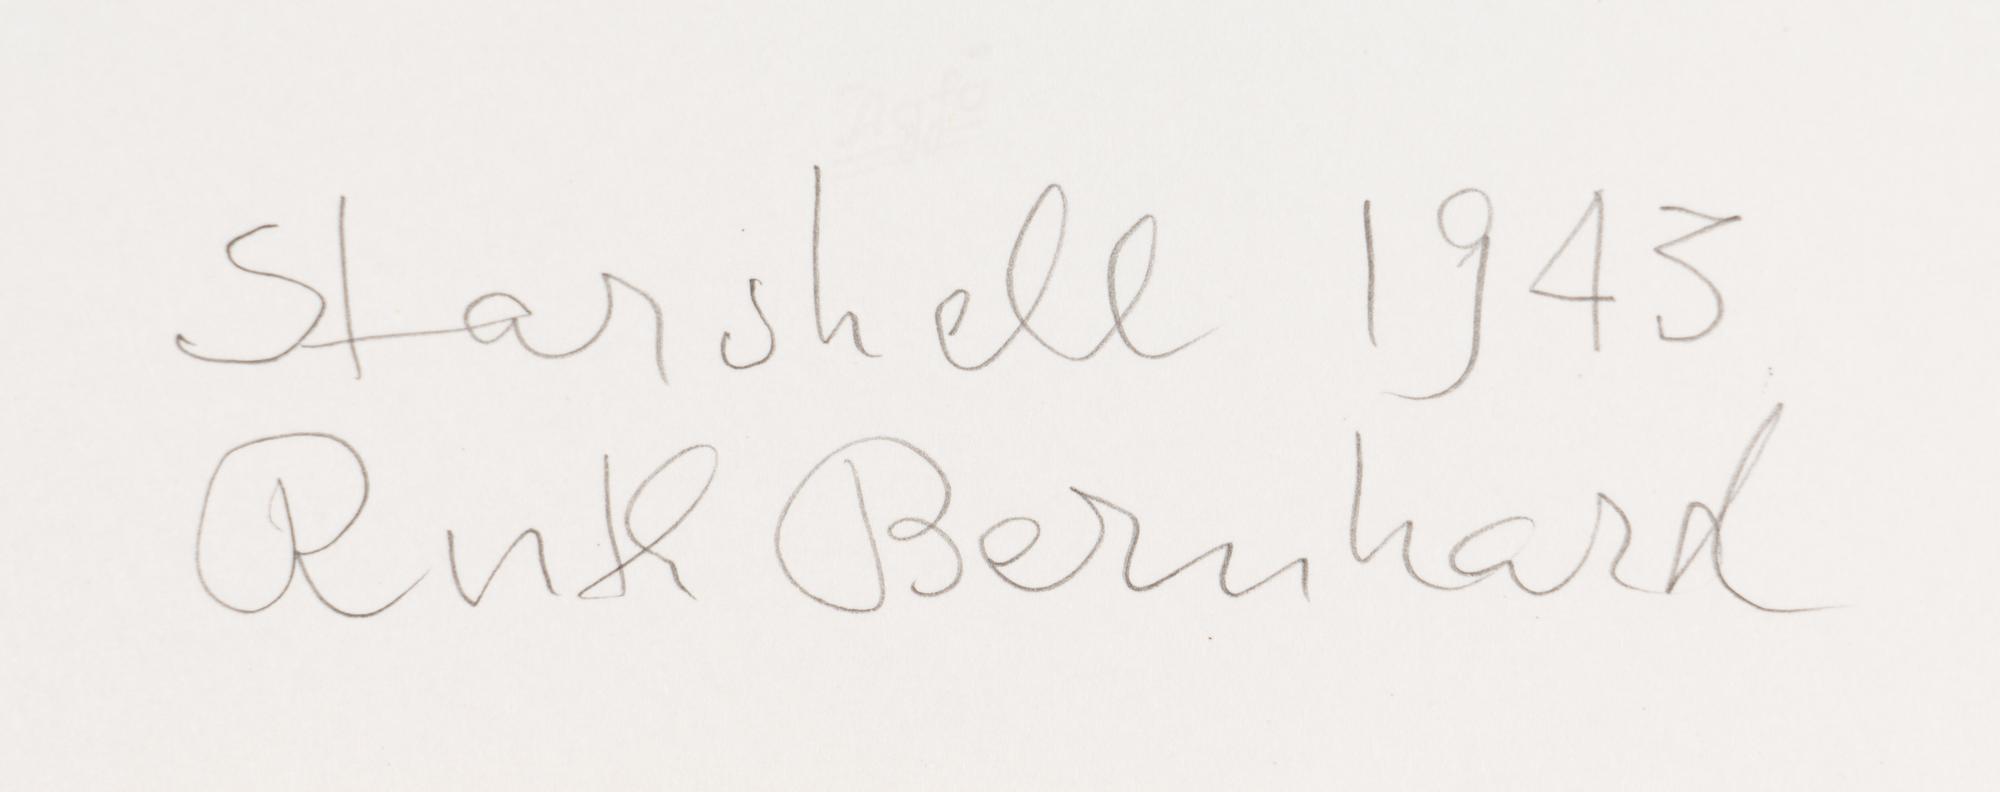 Agfa
Starshell 1943
Ruth Bernhard